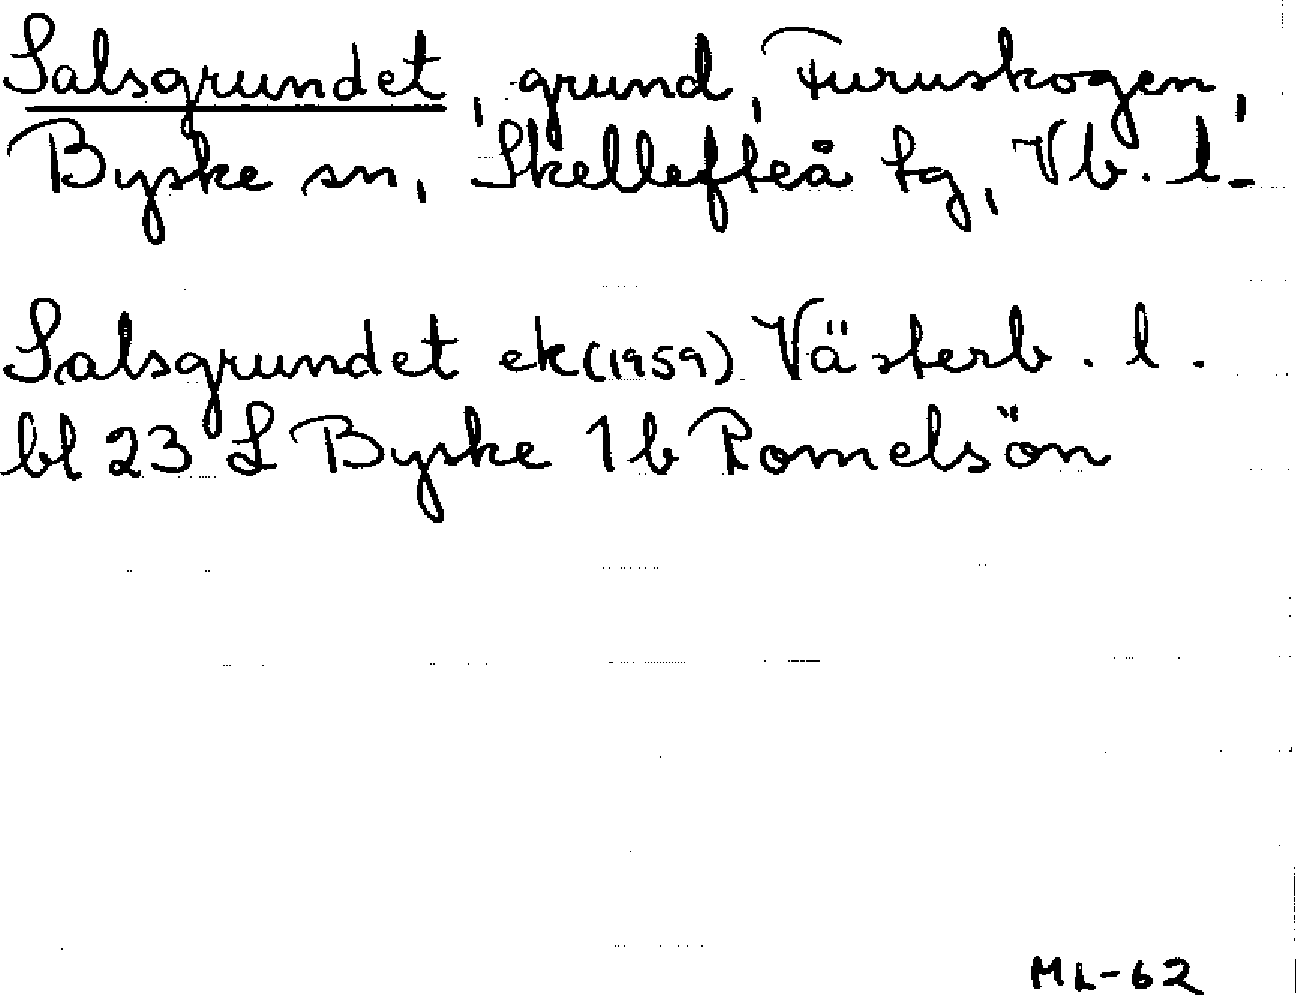 Salsgrundet, grund, Furuskogen,
Byske sn, Skellefteå tg, Vb. l.
Salsgrundet ek(1959) Västerb. l.
bl 23 L Byske 1 b Romelsön
ML-62